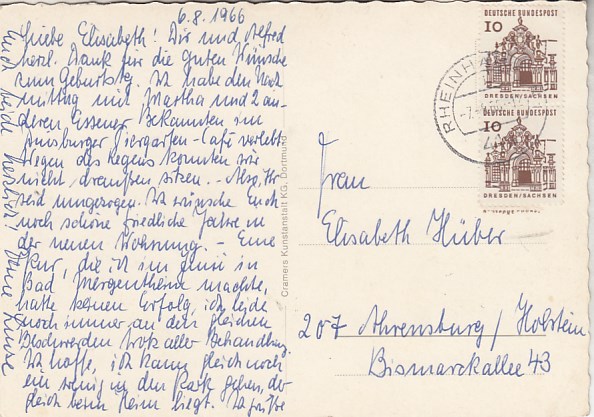 6.8.1966
Liebe Elisabeth! Dir und Alfred
herzl. Dank für die guten Wünsche
zum Geburtstag. Ich habe den Nach
mittag mit Martha und 2 an-
deren Essener Bekannten im
Duisburger Tiergarten-Café verlebt.
Wegen des Regens konnten wir
nicht draußen sitzen. - Also, Ihr
seid umgezogen. Ich wünsche Euch
noch schöne friedliche Jahre in
der neuen Wohnung. - Eine
Kur, die ich im Juni in
Bad Mergentheim machte,
hatte keinen Erfolg, ich leide
noch immer an den gleichen
Beschwerden trotz aller Behandlung.
Ich hoffe, ich kann gleich noch
ein wenig in den Park gehen, der
gleich beim Heim liegt. Ich grüße
Euch beide herzlich! Deine
Cramers Kunstanstalt KG, Dortmund
DEUTSCHE BUNDESPOST
10
DRESDEN/SACHSEN
DEUTSCHE BUNDESPOST
10
DRESDEN/SACHSEN
RHEINH
Frau
Elisabeth Hüber
207 Ahrensburg / Holstein
Bismarckallee 43